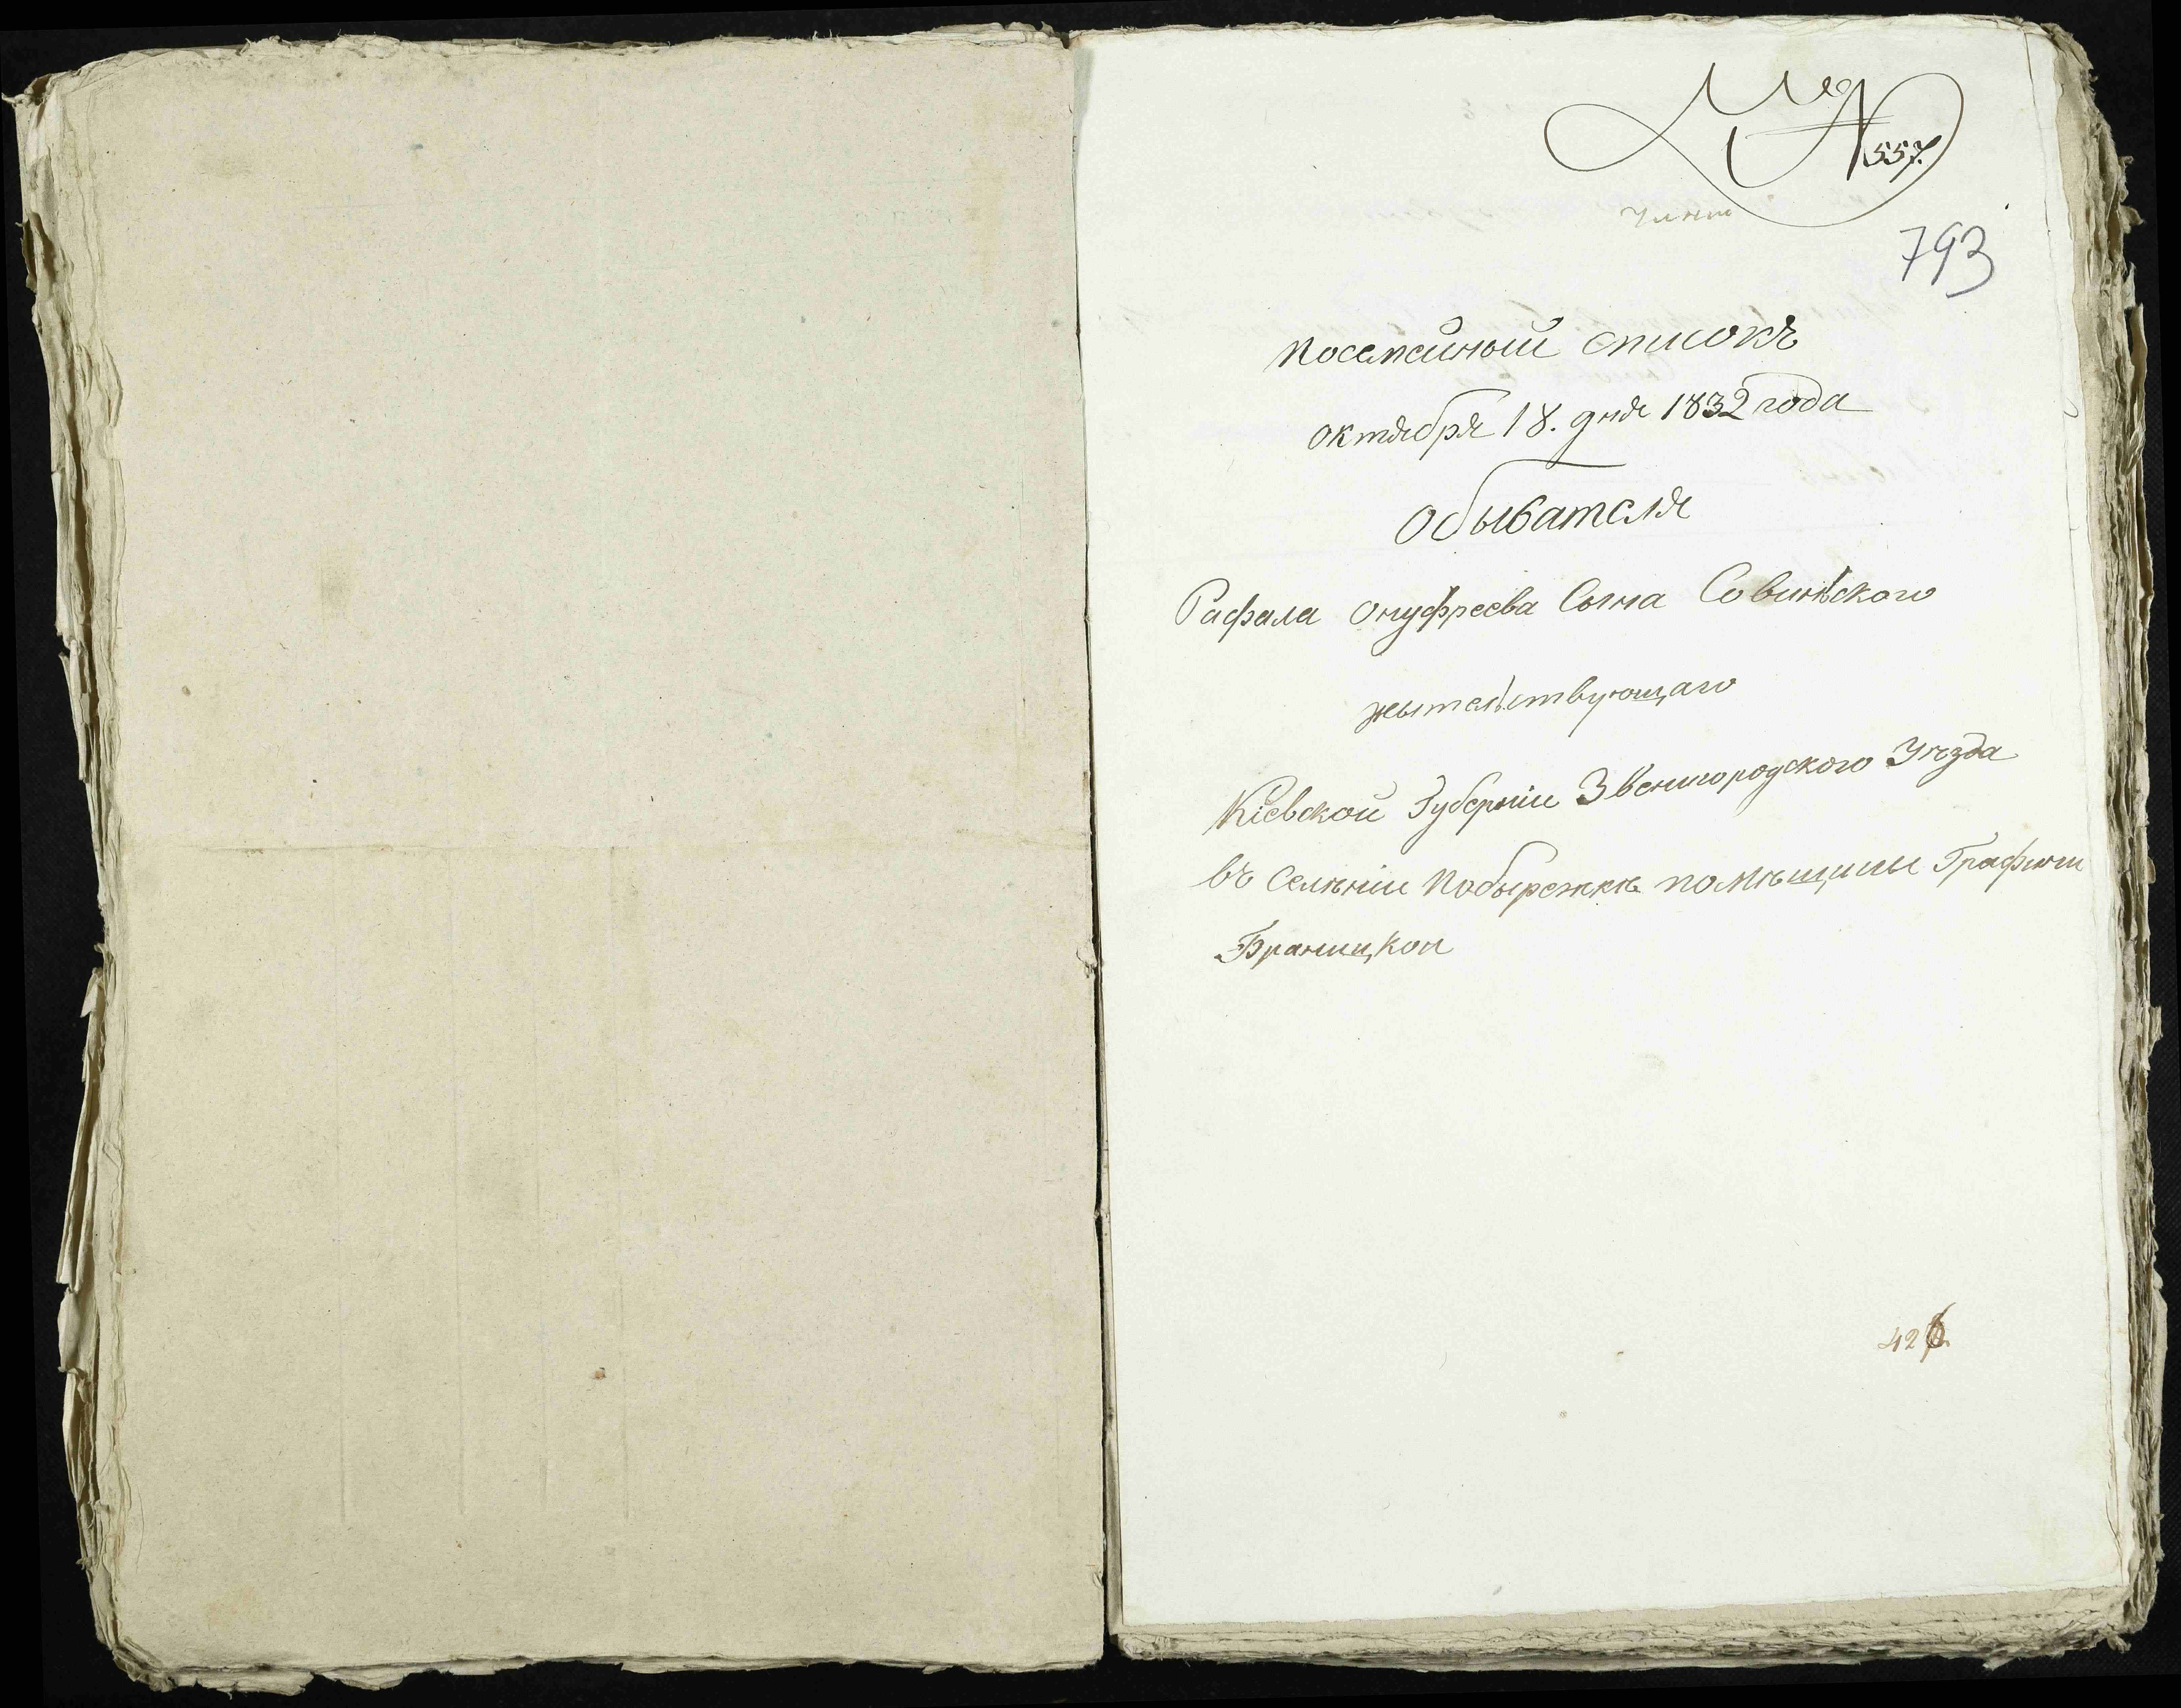 № 557.
793
посемейный списокъ
октября 18. дня 1832 года
Обывателя
Рафала Онуфреева Сына Совинѣского
жытелствующаго
Кіевской Губерніи Звенигородского Уѣзда
въ Селѣніи Побырежкѣ помѣщицы Графини
Браницкой
426